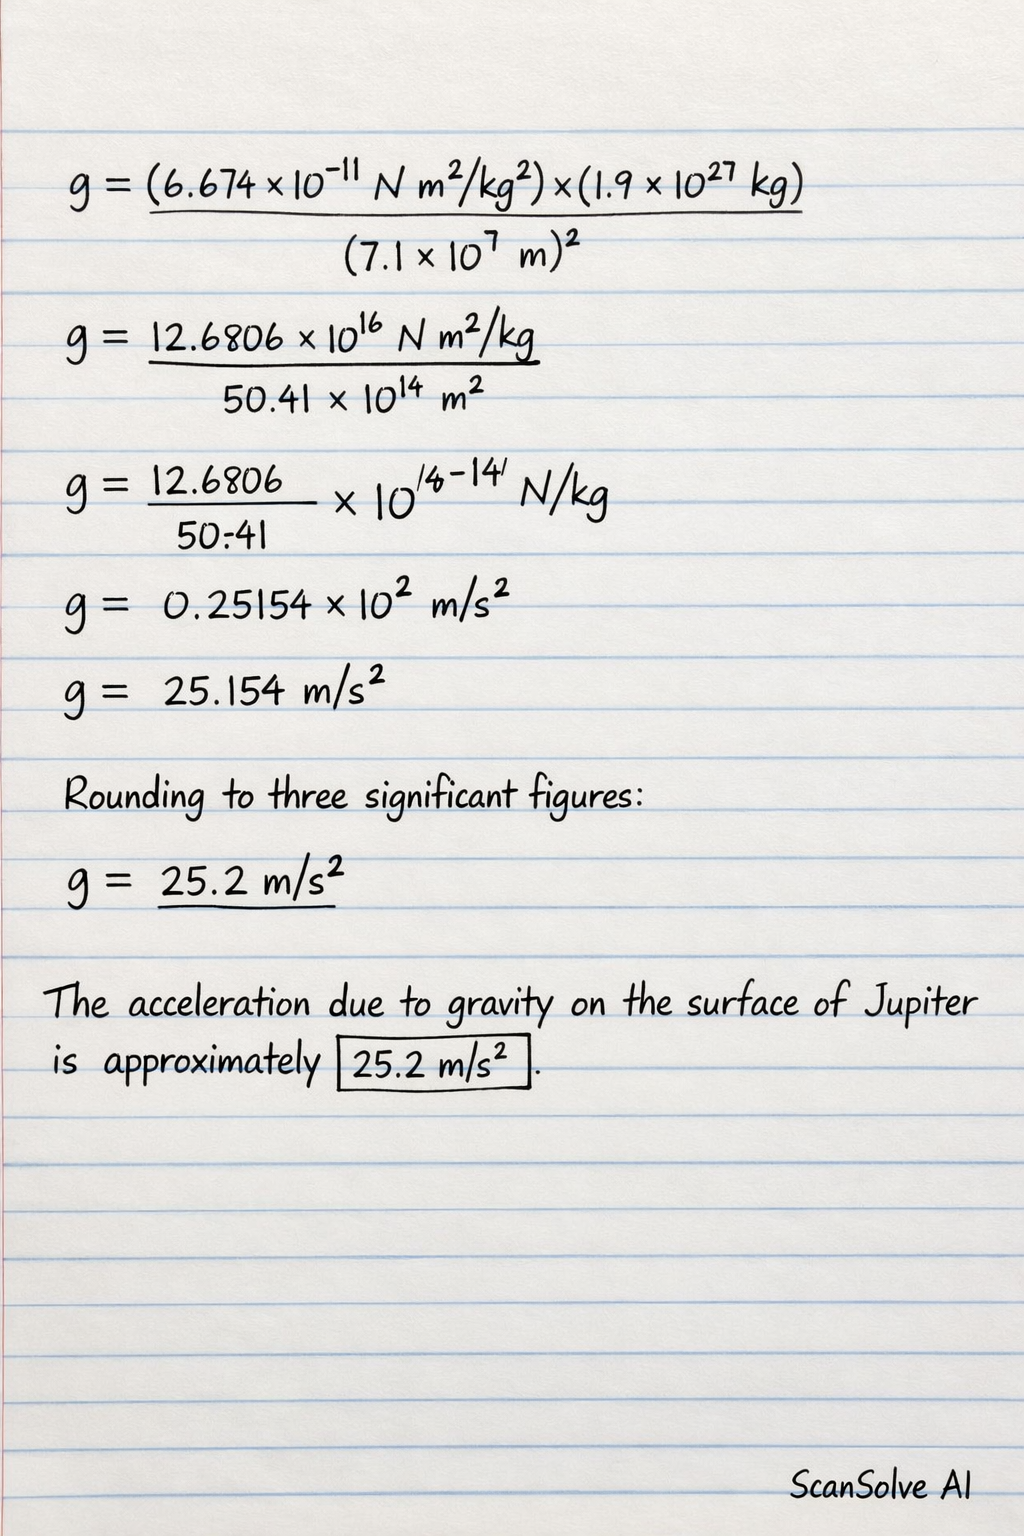 g = (6.674 × 10⁻¹¹ N m²/kg²) × (1.9 × 10²⁷ kg)
(7.1 × 10⁷ m)²
g = 12.6806 × 10¹⁶ N m²/kg
50.41 × 10¹⁴ m²
g = 12.6806 × 10¹⁶⁻¹⁴ N/kg
50.41
g = 0.25154 × 10² m/s²
g = 25.154 m/s²
Rounding to three significant figures:
g = 25.2 m/s²
The acceleration due to gravity on the surface of Jupiter
is approximately 25.2 m/s².
ScanSolve AI